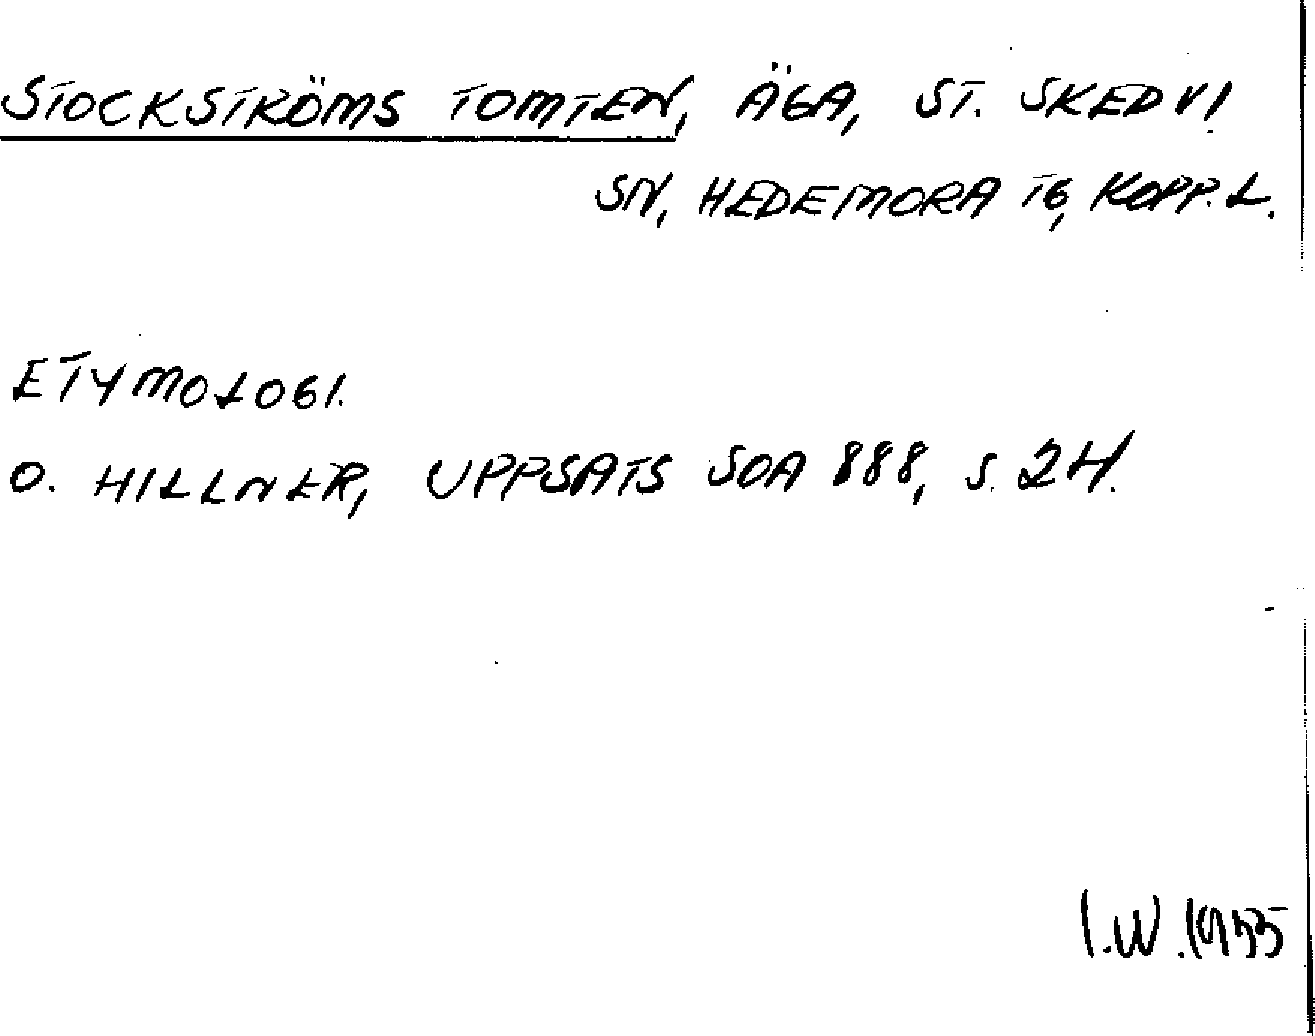 STOCKSTRÖMS TOMTEN, ÄGA, ST. SKEDVI
SN, HEDEMORA TG, KOPP. L.
ETYMOLOGI.
O. HILLNER, UPPSATS SOA 888, S. 24.
I.W.